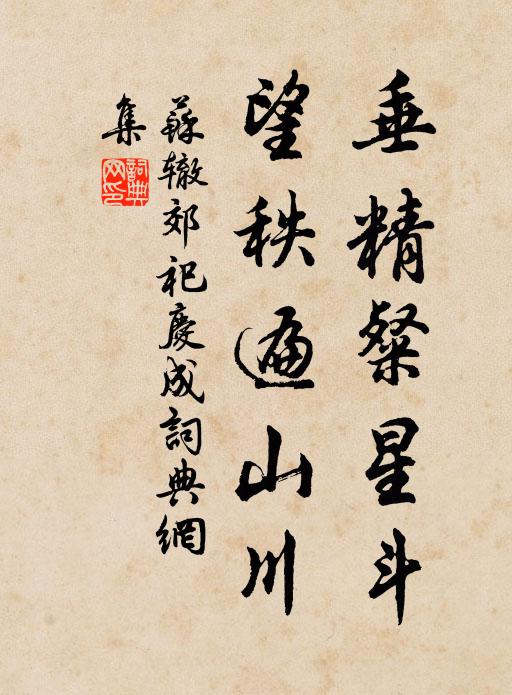 垂精粲星斗
望秩遍山川
蘇辙郊祀慶成詞典網
集
詞典網印